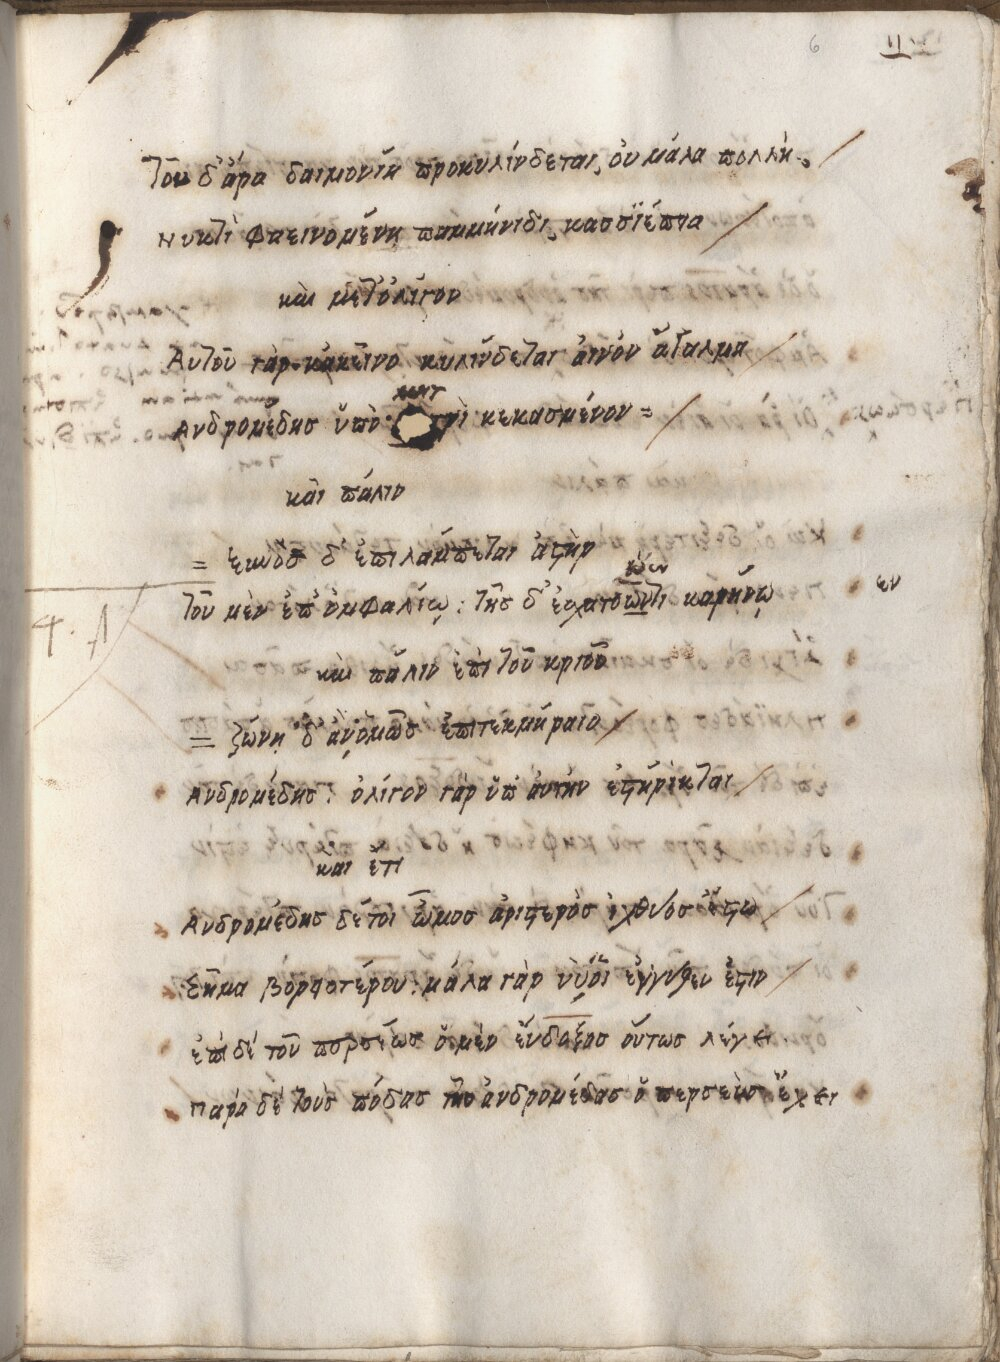 6 11
Τοῦ δ' ἄρα δαιμονίη προκυλίνδεται, οὐ μάλα πολλὴ.
Νυκτὶ φαεινομένη παμμήνιδι, κασσϊέπια
καὶ μετ' ὀλίγον
Αυτοῦ γὰρ κἀκεῖνο κυλίνδεται ἀινὸν ἄγαλμα
Ανδρομέδησ ὑπὸ μητρὶ κεκασμένον =
καὶ πάλιν
= ξυνὸσ δ' ἐπιλάμπεται ἀϛὴρ
Τοῦ μὲν ἐπ' ὀμφαλίῳ: Τῆσ δ' ἐσχατοῶντι καρήνῳ
εν
καὶ πάλιν ἐπὶ τοῦ κριοῦ
= ζώνῃ δ' ἀν ὁμῶσ ἐπιτεκμήραιο
Ανδρομέδησ: ὀλίγον γὰρ ὑπ' ἀυτὴν ἐϛήρικται
καὶ ἔτι
Ανδρομέδησ δέ τοι ὦμοσ ἀριϛερὸσ ἰχθύοσ ἔϛω
Σῆμα βορεοτέρου: μάλα γὰρ νύ οἱ ἐγγύθεν ἐϛιν
ἐπὶ δὲ τοῦ περσέωσ ὁ μὲν ἔυδοξοσ οὕτωσ λέγει
Παρὰ δὲ τοὺσ πόδασ τῆσ ἀνδρομέδασ ὁ περσεὺσ ἔχει